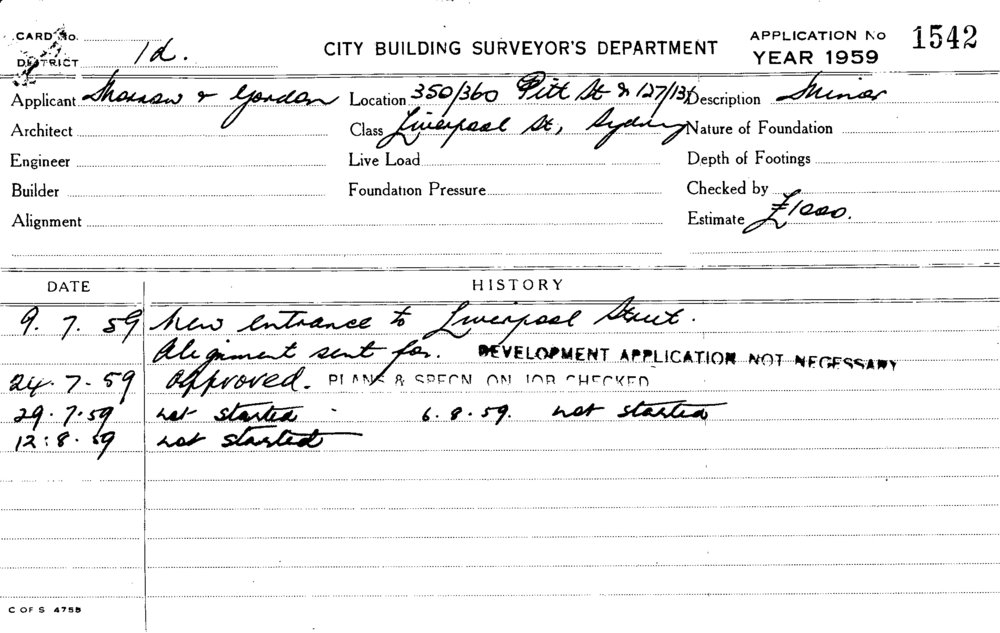 CARD No.
DISTRICT 1d.
CITY BUILDING SURVEYOR'S DEPARTMENT
APPLICATION No 1542
YEAR 1959
Applicant & Gordon Location 350/360 Pitt St & 127/131 Description Minor
Architect Class Liverpool St, Sydney Nature of Foundation
Engineer Live Load Depth of Footings
Builder Foundation Pressure Checked by
Alignment Estimate £1000.
DATE HISTORY
9.7.59 New entrance to Liverpool Street.
Alignment sent for. DEVELOPMENT APPLICATION NOT NECESSARY
24.7.59 Approved. PLANS & SPECN ON JOB CHECKED
29.7.59 not started - 6.8.59. not started
12:8.59 not started
C OF S 4758